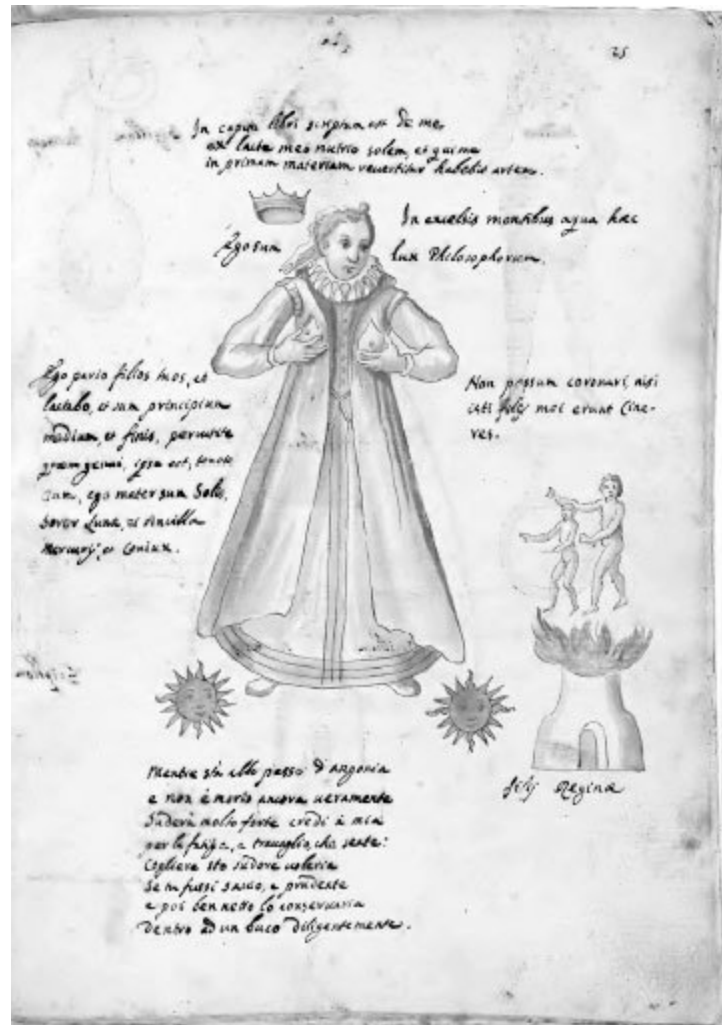 25
In capite libri scriptum est de me,
ex lacte meo nutrio solem, et qui me
in primam materiam revertitur habebit artem.
Ego sum
In excelsis montibus aqua hæc
lux Philosophorum.
Ego pario filios meos, et
lactabo, et sum principium
medium, et finis,
quem genui, ipsa est,
ego mater sum Solis,
Soror Lunæ, et Ancilla
Mercurij, et Coniux.
Non possum coronari, nisi
isti filij mei erunt Cine-
res.
filij Reginæ
Mentre sta allo passo d'angonia
e non è morto ancora veramente
Suderà molto forte credi à mia
per la e travaglio, che sente:
Cogliere sto sudore voleria
Se tu fussi savio, e prudente
e poi ben netto lo conservaria
dentro ad un buco diligentemente.